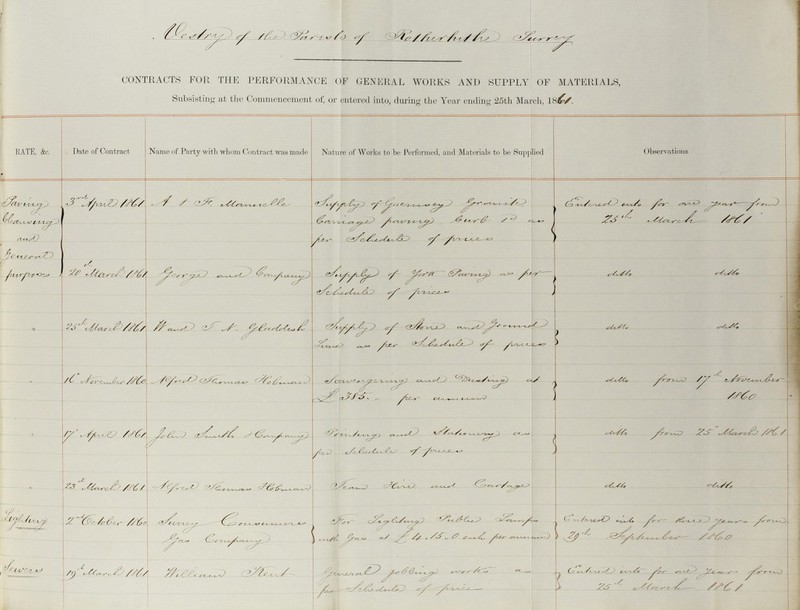 Vestry of the Parish of Rotherhithe Surrey
CONTRACTS FOR THE PERFORMANCE OF GENERAL WORKS AND SUPPLY OF MATERIALS,
Subsisting at the Commencement of, or entered into, during the Year ending 25th March, 1861.
RATE, &c. Date of Contract Name of Party with whom Contract was made Nature of Works to be Performed, and Materials to be Supplied Observations
Paving 3rd April 1861 A & F. Manuelle Supply of Guernsey Granite Entered into for one year from
Cleansing Carriage paving Curb &c as 25th March 1861
and per Schedule of prices
General
purposes 20th March 1861 George and Company Supply of York Paving as per ditto ditto
Schedule of prices
" 25th March 1861 W and T. N. Gladdish Supply of Stone and Ground ditto ditto
Lime as per Schedule of prices
" 16 November 1860 Alfred Thomas Hobman Scavengering and Dusting at ditto from 17th November
£385. - per annum 1860
" 17 April 1861 John Smith & Company Printing and Stationery as ditto from 25th March 1861
per Schedule of prices
" 23rd March 1861 Alfred Thomas Hobman Team Hire and Cartage ditto ditto
Lighting 2nd October 1860 Surrey Consumers For Lighting Public Lamps Entered into for three years from
Gas Company with Gas at £4.15.0 each per annum 29th September 1860
Sewers 19th March 1861 William Kent General jobbing works as Entered into for one year from
per Schedule of prices 25th March 1861